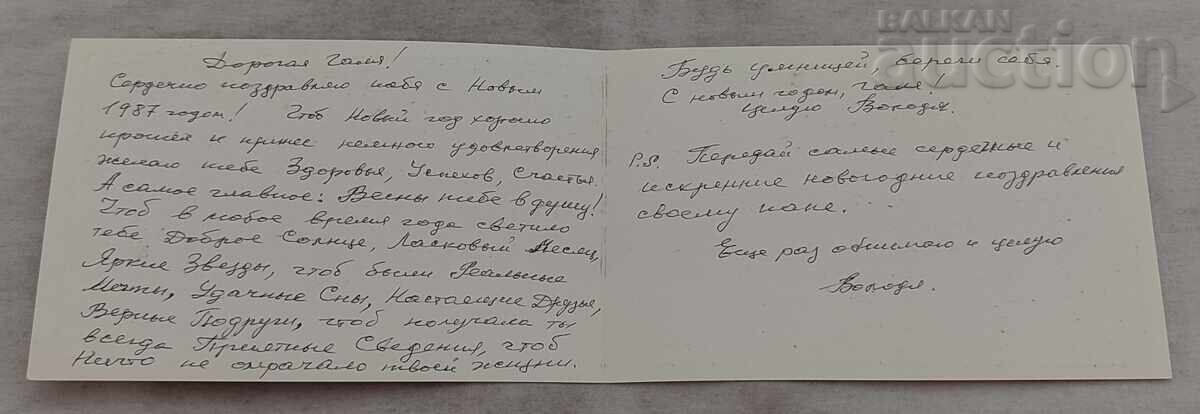 Дорогая Галя!
Сердечно поздравляю тебя с Новым
1987 годом! Чтоб Новый год хорошо
прошел и принес немного удовлетворения
желаю тебе Здоровья, Успехов, Счастья.
А самое главное: Весны тебе в душу!
Чтоб в любое время года светило
тебе Доброе Солнце, Ласковый Месяц,
Яркие Звезды, чтоб были Реальные
Мечты, Удачные Сны, Настаещие Друзья,
Верные Подруги, чтоб получала ты
всегда Приетные Сведения, чтоб
Ничто не омрачало твоей жизни.
Будь умницей, береги себя.
С новым годом, Галя!
Целую Володя.
P.S. Передай самые сердечные и
искренние новогодние поздравления
своему папе.
Еще раз обнимаю и целую
Володя.
BALKAN
auction